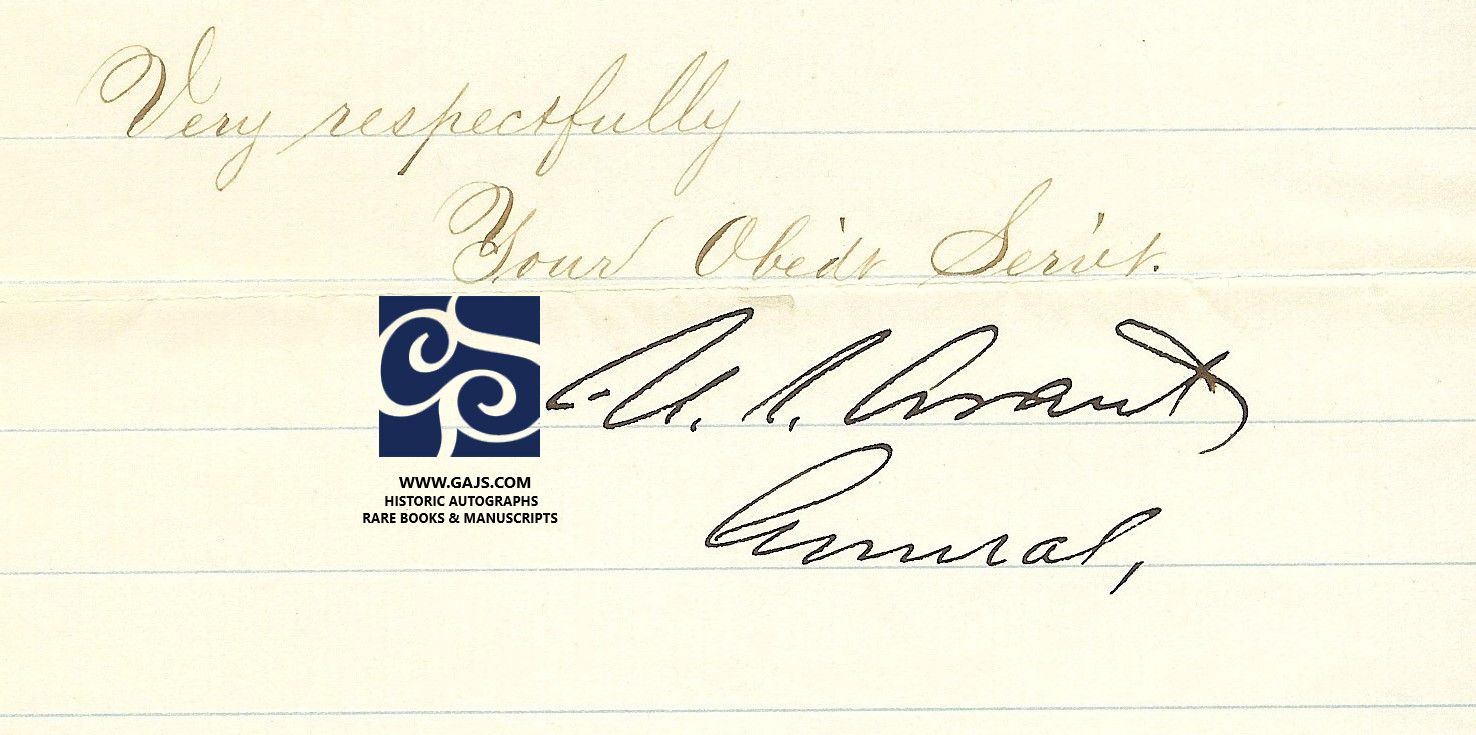 Very respectfully
Your Obedt Servt.
U. S. Grant
General,
WWW.GAJS.COM
HISTORIC AUTOGRAPHS
RARE BOOKS & MANUSCRIPTS